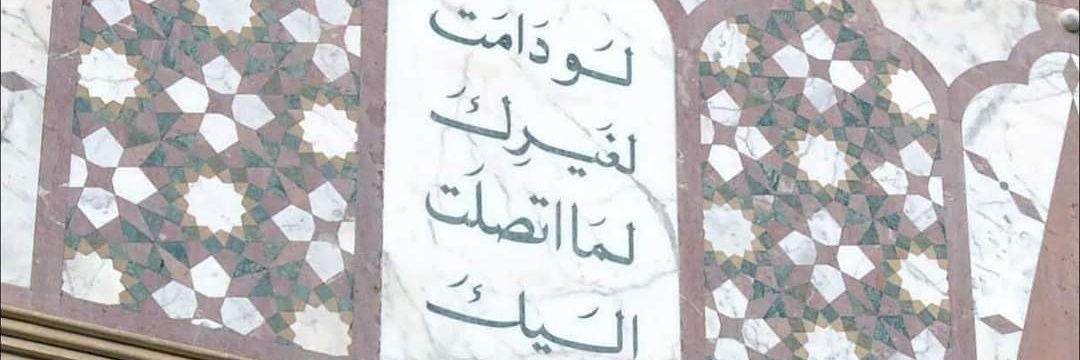 لَو دَامَت
لغَيرِكَ
لمَا اتصلَت
اليكَ